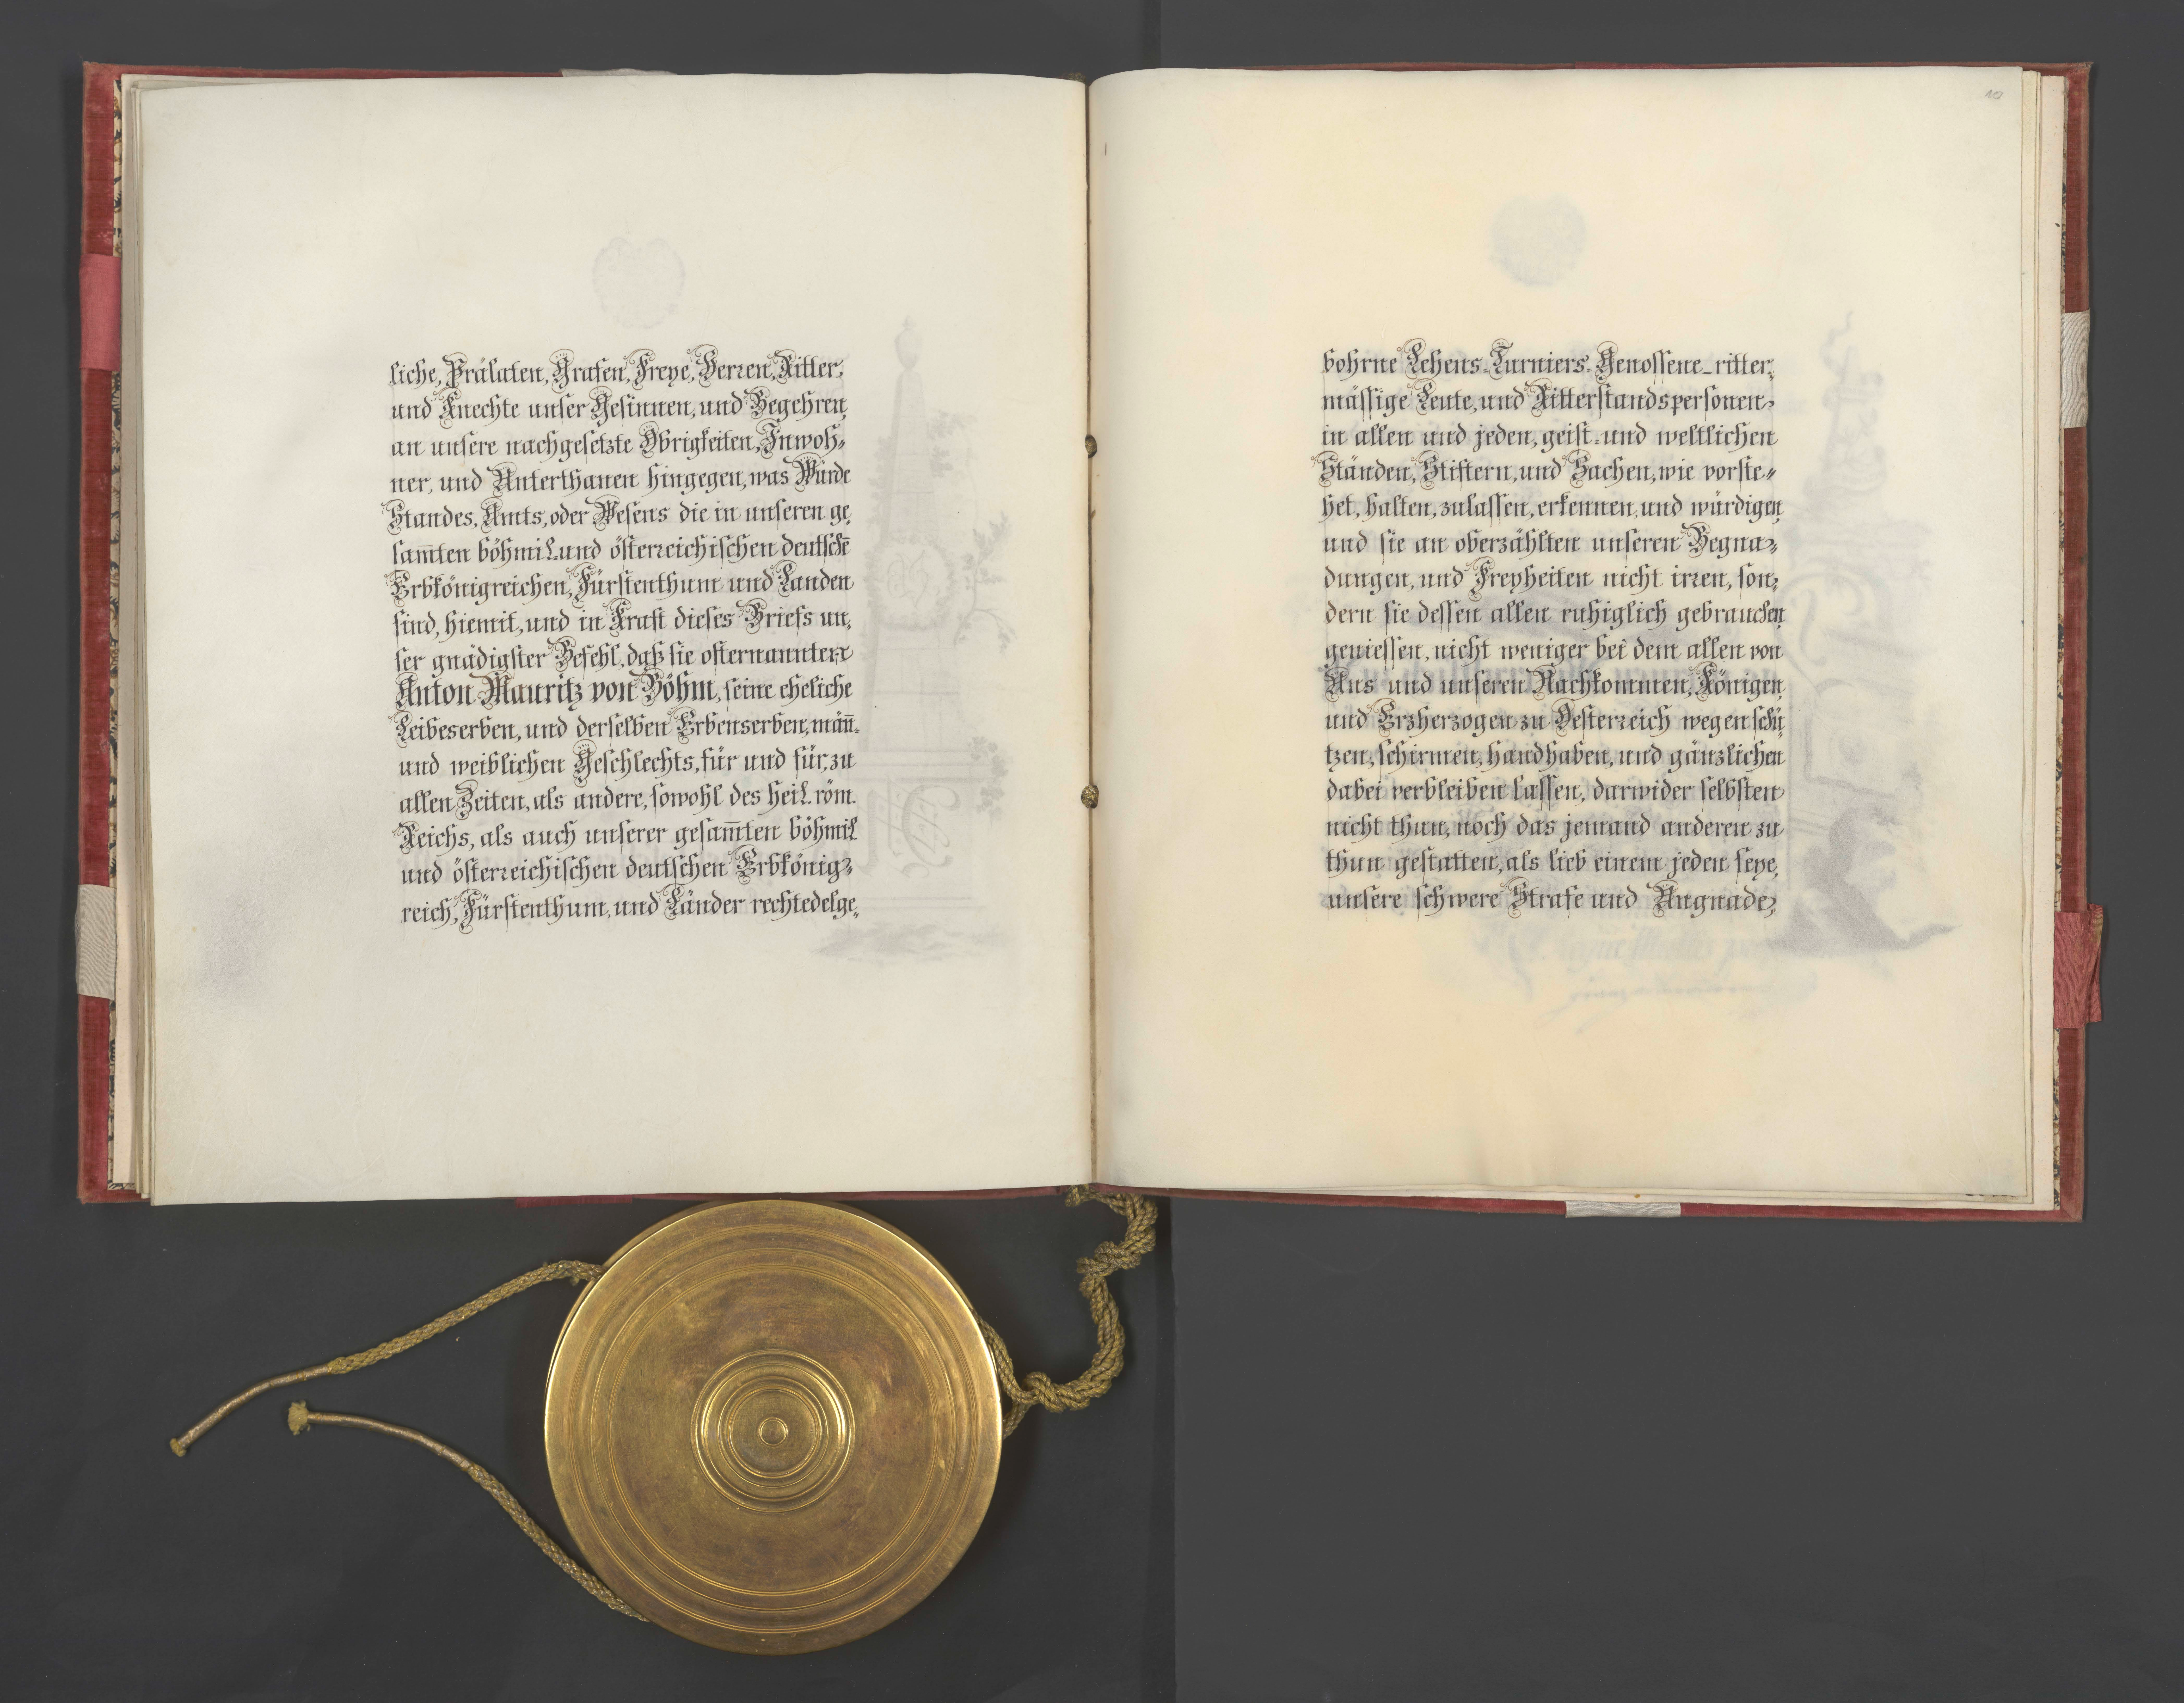 liche, Prälaten, Grafen, Freye, Herren, Ritter,
und Knechte unser Gesinnen, und Begehren,
an unsere nachgesetzte Obrigkeiten, Inwoh=
ner, und Unterthanen hingegen, was Würde
Standes, Amts, oder Wesens die in unseren ge,
sam̄ten böhmil. und österreichischen deutschē
Erbkönigreichen, Fürstenthum und Landen
sind, hiemit, und in Kraft dieses Briefs un,
ser gnädigster Befehl, daß sie ofternannten
Anton Mauritz von Böhm, seine eheliche
Leibeserben, und derselben Erbenserben, män̄.
und weiblichen Geschlechts, für und für, zu
allen Zeiten, als andere, sowohl des heil. röm.
Reichs, als auch unserer gesam̄ten böhmil
und österreichischen deutschen Erbkönig=
reich, Fürstenthum, und Länder rechtedelge,
10
bohrne Lehens-Turniers-Genossene-ritter,
mässige Leute, und Ritterstandspersonen
in allen und jeden, geist- und weltlichen
Ständen, Stiftern, und Sachen, wie vorste=
het, halten, zulassen, erkennen, und würdigen,
und sie an oberzählten unseren Begna=
dungen, und Freyheiten nicht irren, son=
dern sie dessen allen ruhiglich gebrauchen,
geniessen, nicht weniger bei dem allen von
Uns und unseren Nachkommen, Königen,
und Erzherzogen zu Oesterreich wegen schü=
tzen, schirmen, handhaben, und gänzlichen
dabei verbleiben lassen, darwider selbsten
nicht thun, noch das jemand anderen zu
thun gestatten, als lieb einem jeden seye,
unsere schwere Strafe und Ungnade,